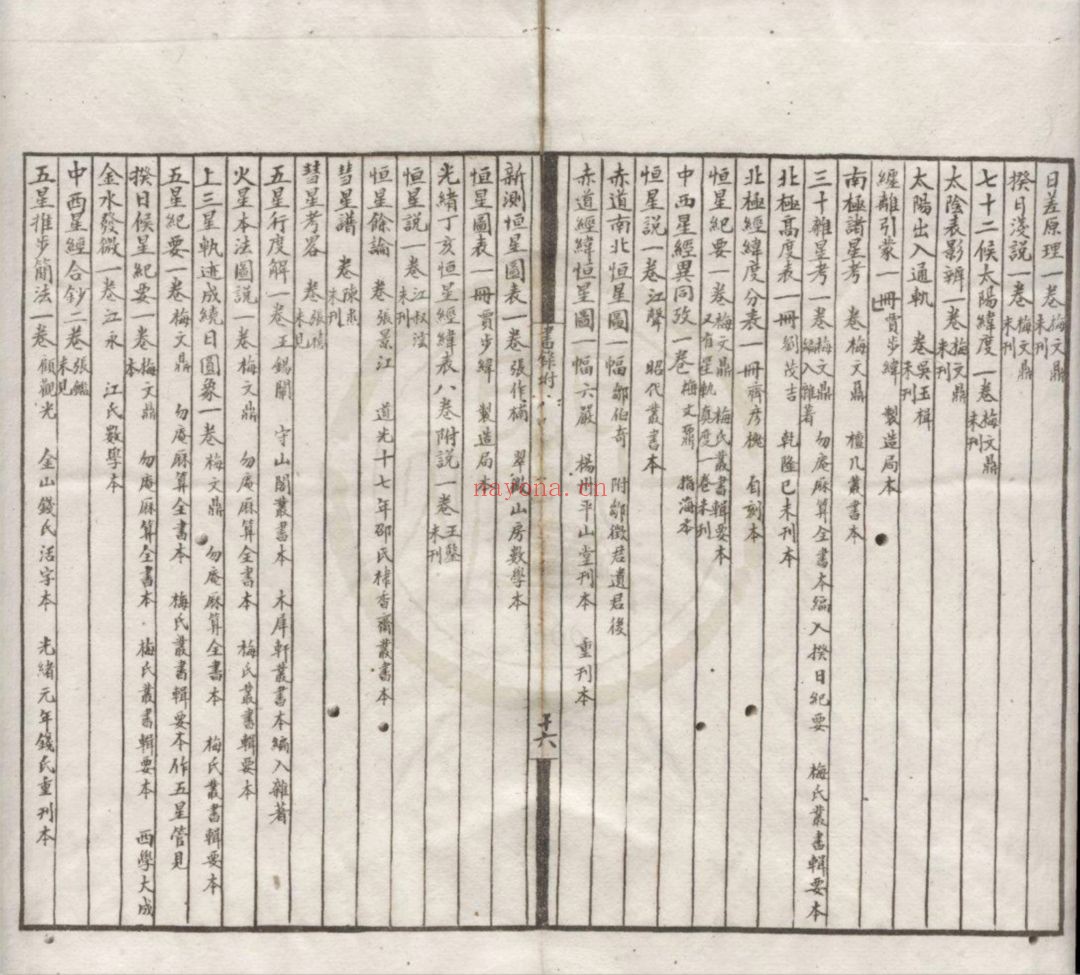 日差原理一卷梅文鼎未刊
揆日淺說一卷梅文鼎未刊
七十二候太陽緯度一卷梅文鼎未刊
太陰表影辨一卷梅文鼎未刊
太陽出入通軌　卷吳玉楫未刊
纏離引蒙一冊賈步緯　製造局本
南極諸星考　卷梅文鼎　檀几叢書本
三十雜星考一卷梅文鼎編入雜著　勿庵厤算全書本編入揆日紀要　梅氏叢書輯要本
北極高度表一冊劉茂吉　乾隆己未刊本
北極經緯度分表一冊齊彥槐　自刻本
恒星紀要一卷梅文鼎又有星軌真度一卷未刊　梅氏叢書輯要本
中西星經異同攷一卷梅文鼐　指海本
恒星說一卷江聲　昭代叢書本
赤道南北恒星圖一幅鄒伯奇　附鄒徵君遺書後
赤道經緯恒星圖一幅六嚴　楊州平山堂刊本　重刊本
書錄附
十六
新測恒星圖表一卷張作楠　翠微山房數學本
恒星圖表一冊賈步緯　製造局本
光緒丁亥恒星經緯表八卷附說一卷王鑒未刊
恒星說一卷江叔澐未刊
恒星餘論　卷張景江　道光十七年邵氏棣香齋叢書本
彗星譜　卷陳未刊
彗星考畧　卷張未見
五星行度解一卷王錫闡　守山閣叢書本　木犀軒叢書本編入雜著
火星本法圖說一卷梅文鼎　勿庵厤算全書本　梅氏叢書輯要本
上三星軌迹成繞日圓象一卷梅文鼎　勿庵厤算全書本　梅氏叢書輯要本
五星紀要一卷梅文鼎　勿庵厤算全書本　梅氏叢書輯要本作五星管見
揆日候星紀要一卷梅文鼎　勿庵厤算全書本　梅氏叢書輯要本　西學大成本
金水發微一卷江永　江氏數學本
中西星經合鈔二卷張鑑未見
五星推步簡法一卷顧觀光　金山錢氏活字本　光緒元年錢氏重刊本
nayona.cn